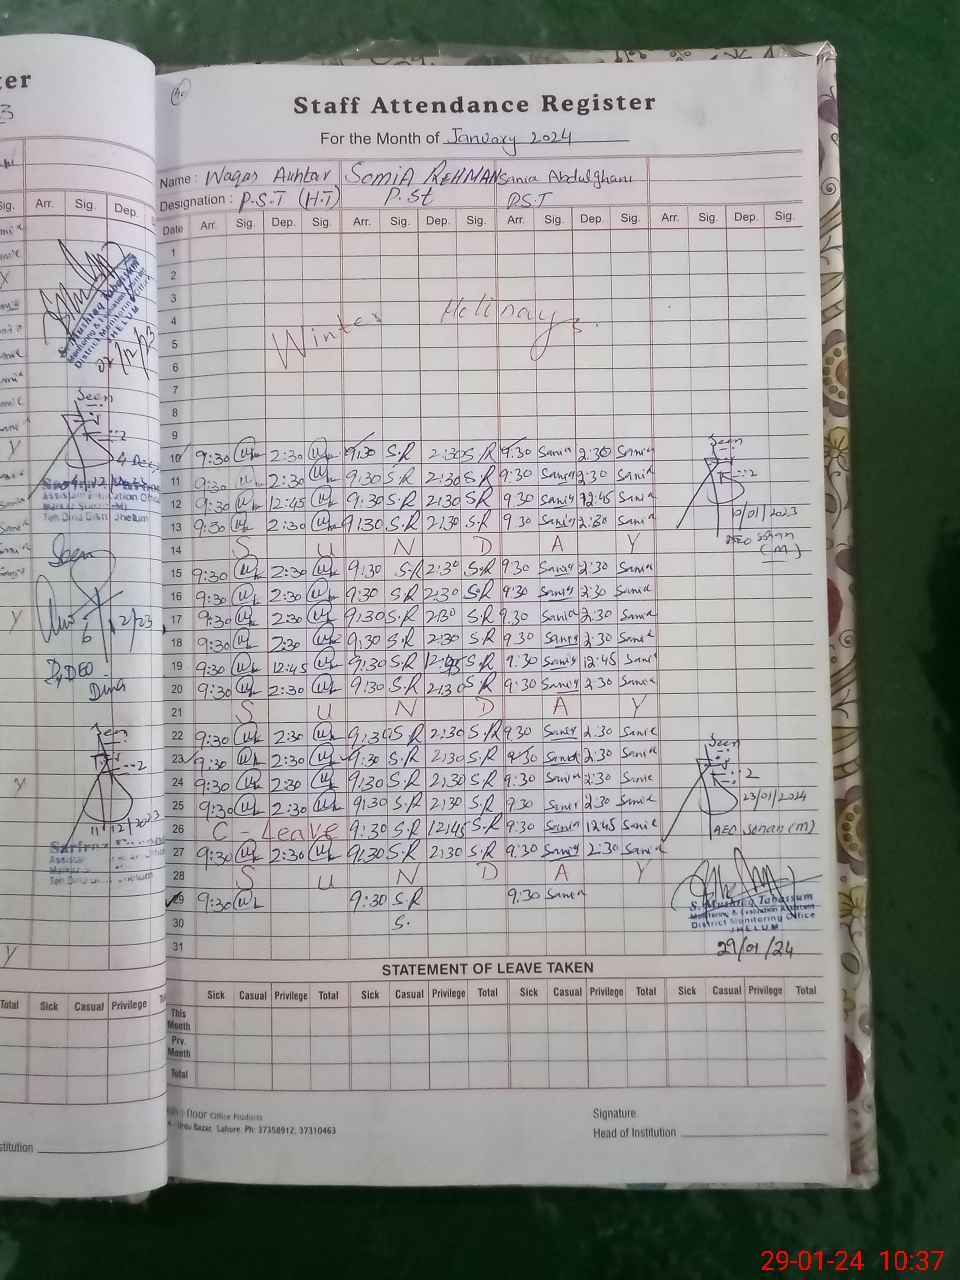 ter
Staff Attendance Register
For the Month of January 2024
Name : Waqas Akhtar SOMIA REHMAN Sania Abdulghani
Designation : P.S.T (H.T) P.St P.S.T
Date Arr. Sig. Dep. Sig. Arr. Sig. Dep. Sig. Arr. Sig. Dep. Sig. Arr. Sig. Dep. Sig.
1
2
3
4
Winter Holidays.
5
6
7
8
9
10 9:30 2:30 9:30 S.R 2:30 S.R 9.30 Sania 2.30 Sania
11 9:30 2:30 9:30 S.R 2:30 S.R 9.30 Sania 2.30 Sania
12 9:30 12:45 9:30 S.R 2:30 S.R 9.30 Sania 12.45 Sania
13 9:30 2:30 9:30 S.R 2:30 S.R 9.30 Sania 2.30 Sania
14 S U N D A Y
15 9:30 2:30 9:30 S.R 2:30 S.R 9.30 Sania 2.30 Sania
16 9:30 2:30 9:30 S.R 2:30 S.R 9.30 Sania 2.30 Sania
17 9:30 2:30 9:30 S.R 2:30 S.R 9.30 Sania 2.30 Sania
18 9:30 2:30 9:30 S.R 2:30 S.R 9.30 Sania 2.30 Sania
19 9:30 12:45 9:30 S.R 12:45 S.R 9.30 Sania 12.45 Sania
20 9:30 2:30 9:30 S.R 2:30 S.R 9.30 Sania 2.30 Sania
21 S U N D A Y
22 9:30 2:30 9:30 S.R 2:30 S.R 9.30 Sania 2.30 Sania
23 9:30 2:30 9:30 S.R 2:30 S.R 9.30 Sania 2.30 Sania
24 9:30 2:30 9:30 S.R 2:30 S.R 9.30 Sania 2.30 Sania
25 9:30 2:30 9:30 S.R 2:30 S.R 9.30 Sania 2.30 Sania
26 C - Leave 9:30 S.R 12:45 S.R 9.30 Sania 12.45 Sania
27 9:30 2:30 9:30 S.R 2:30 S.R 9.30 Sania 2.30 Sania
28 S U N D A Y
29 9:30 9:30 S.R 9.30 Sania
30 S.
31
Seen
10/01/2023
AEO Sohan
(M)
Seen
23/01/2024
AEO Sohan (M)
S. Mushtaq Tabassum
Monitoring & Evaluation Assistant
District Monitoring Office
JHELUM
29/01/24
STATEMENT OF LEAVE TAKEN
Sick Casual Privilege Total Sick Casual Privilege Total Sick Casual Privilege Total Sick Casual Privilege Total
This Month
Prv. Month
Total
floor Office Products
Urdu Bazar, Lahore. Ph: 37358912, 37310463
Signature
Head of Institution
Sig. Arr. Sig. Dep.
S. Mushtaq Tabassum
Monitoring & Evaluation Assistant
District Monitoring Office
JHELUM
Seen
Seen
Dy DEO
Dina
Seen
11/12/2023
Total Sick Casual Privilege
stitution
29-01-24 10:37